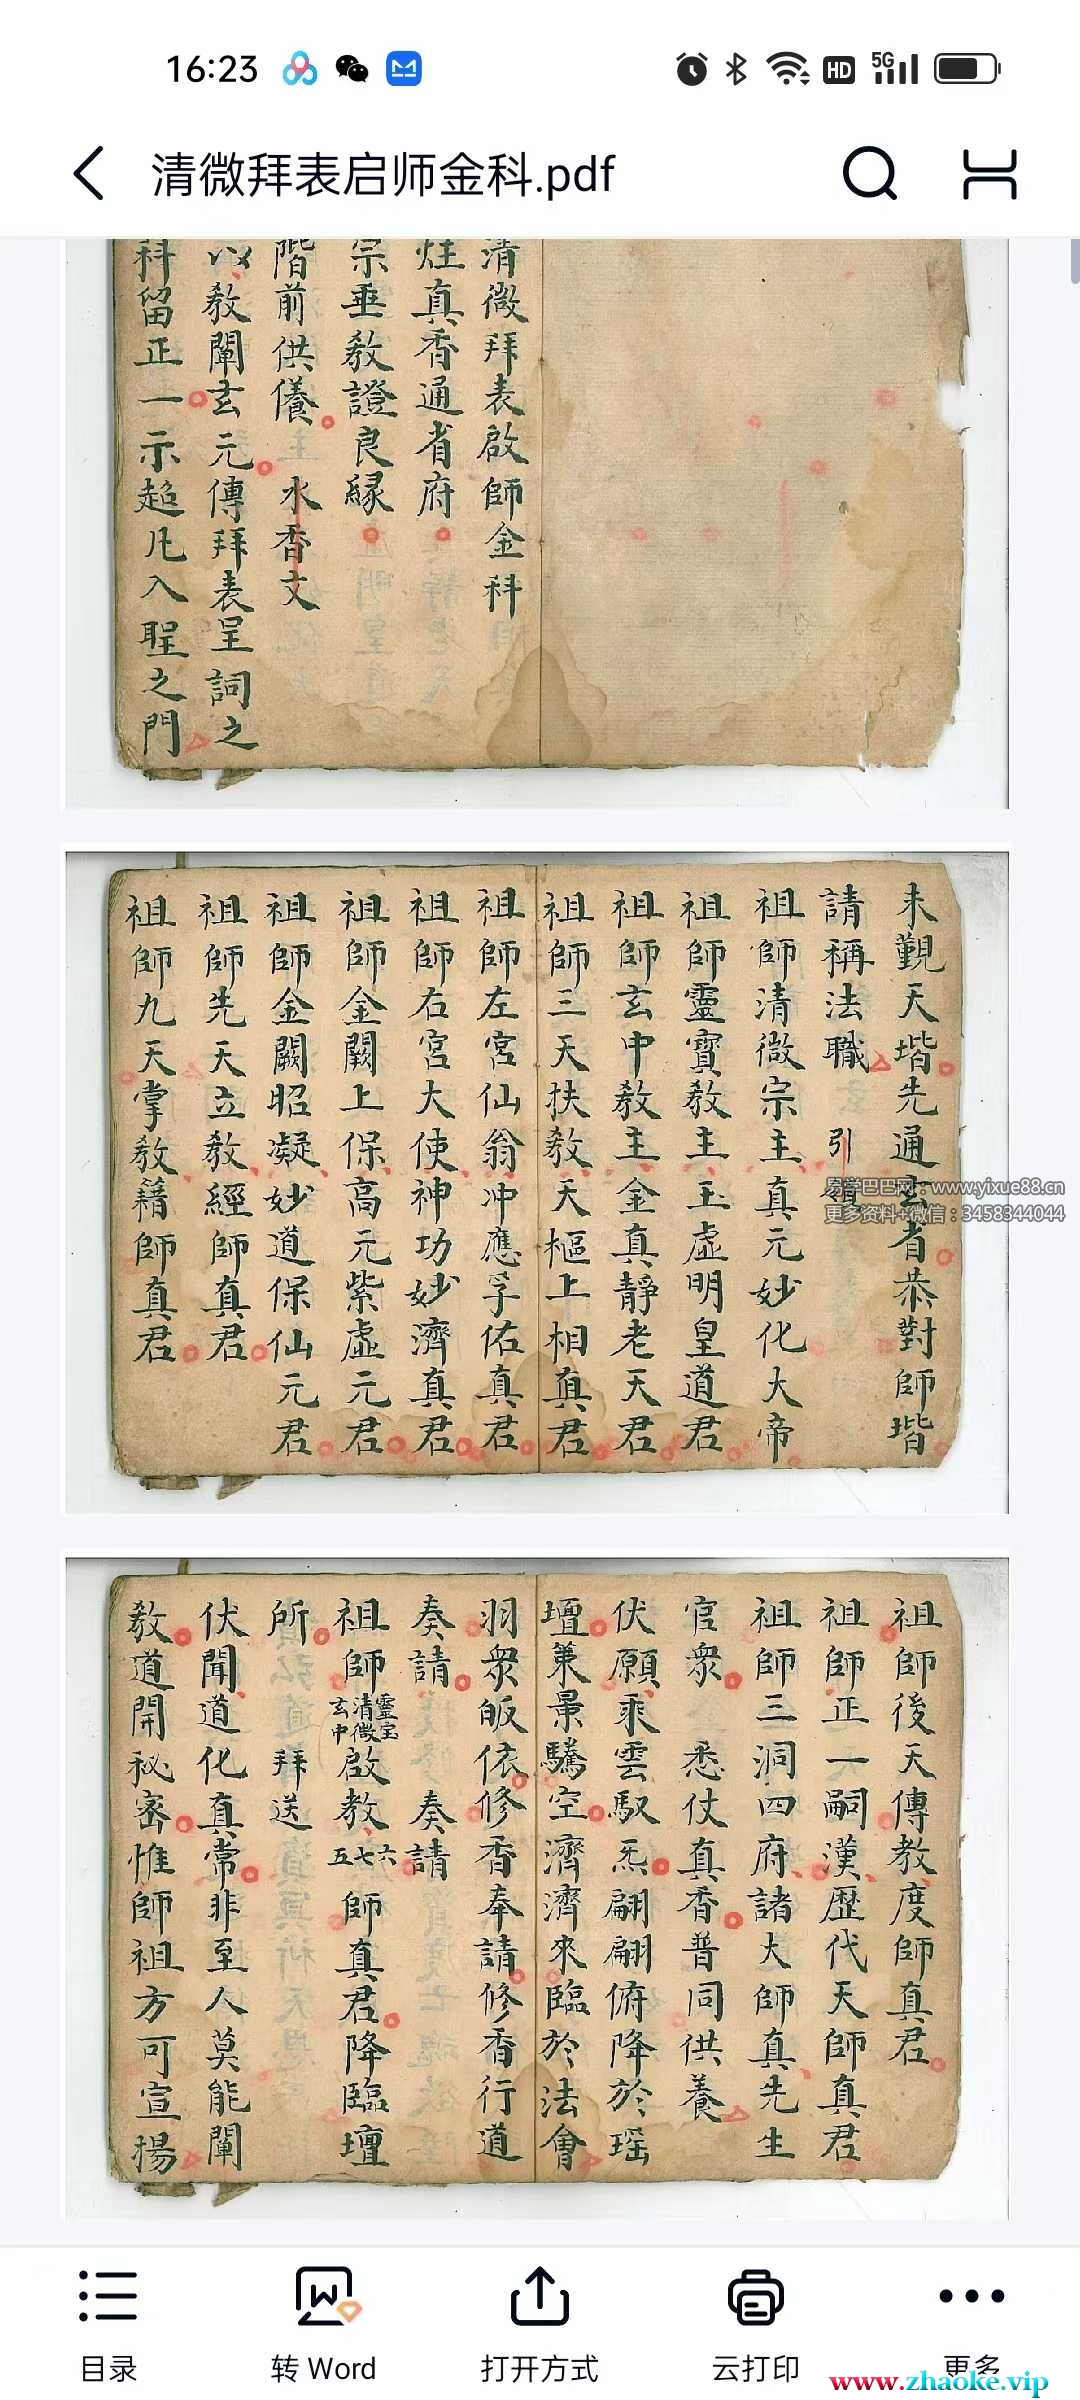 16:23
HD
5G
清微拜表启师金科.pdf
清微拜表啟師金科
炷真香通省府
宗垂教證良緣
階前供養 水香文
以教闡玄元傳拜表呈詞之
科留正一示超凡入聖之門
未覲天堦先通玄省恭對師堦
請稱法職 引
祖師清微宗主真元妙化大帝
祖師靈寶教主玉虛明皇道君
祖師玄中教主金真靜老天君
祖師三天扶教天樞上相真君
祖師左宮仙翁冲應孚佑真君
祖師右宮大使神功妙濟真君
祖師金闕上保高元紫虛元君
祖師金闕昭凝妙道保仙元君
祖師先天立教經師真君
祖師九天掌教籍師真君
易学巴巴网：www.yixue88.cn
更多资料+微信：3458344044
祖師後天傳教度師真君
祖師正一嗣漢歷代天師真君
祖師三洞四府諸大師真先生
官衆 悉仗真香普同供養
伏願乘雲馭炁翩翩俯降於瑶
壇兼景驂空濟濟來臨於法會
羽衆皈依修香奉請修香行道
奏請 奏請
祖師靈宝清微玄中啟教六七五師真君降臨壇
所 拜送
伏聞道化真常非至人莫能闡
教道開秘密惟師祖方可宣揚
目录
转 Word
打开方式
云打印
更多
www.zhaoke.vip